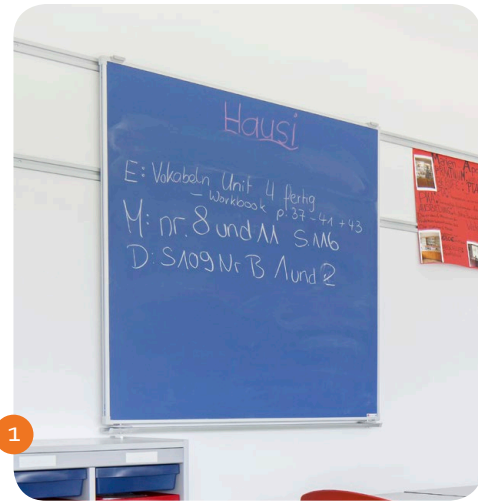 Hausi
E: Vokabeln Unit 4 fertig
– Workbook p. 37 – 41 + 43
M: nr. 8 und 11 S. 116
D: S109 Nr B 1 und 2
1